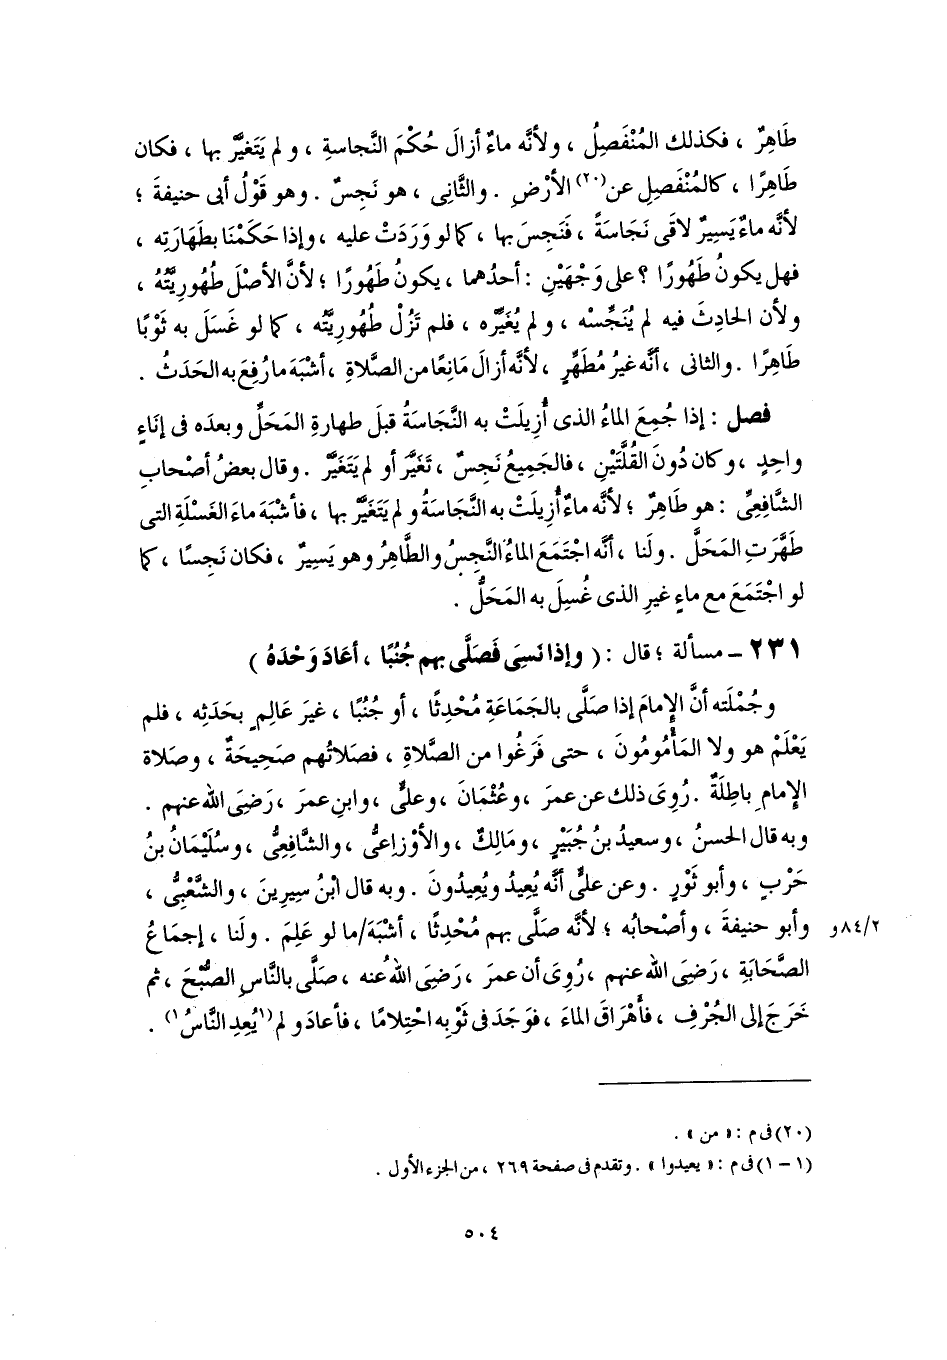 طَاهِرٌ ، فكذلك المُنْفَصِلُ ، ولأنَّه ماءٌ أزالَ حُكْمَ النَّجاسةِ ، و لم يَتَغيَّرْ بها ، فكان
طَاهِرًا ، كالمُنْفَصِلِ عن(٢٠) الأرْضِ . والثَّانِى ، هو نَجِسٌ . وهو قَوْلُ أبى حنيفةَ ؛
لأنَّه ماءٌ يَسِيرٌ لاقَى نَجَاسَةً ، فَنَجِسَ بها ، كما لو وَرَدَتْ عليه ، وإذا حَكَمْنَا بطَهَارَتِه ،
فهل يكونُ طَهُورًا ؟ على وَجْهَيْنِ : أحدُهما ، يكونُ طَهُورًا ؛ لأنَّ الأصْلَ طُهُورِيَّتُهُ ،
ولأن الحادِثَ فيه لم يُنَجِّسْه ، و لم يُغَيِّرْه ، فلم تَزُلْ طُهُورِيَّتُه ، كما لو غَسَلَ به ثَوْبًا
طاهِرًا . والثانى ، أنَّه غيرُ مُطَهِّرٍ ، لأنَّه أزالَ مَانِعًا من الصَّلاةِ ، أشْبَهَ ما رُفِعَ به الحَدَثُ .
فصل : إذا جُمِعَ الماءُ الذى أُزِيلَتْ به النَّجَاسَةُ قبلَ طهارةِ المَحَلِّ وبعدَه فى إنَاءٍ
واحِدٍ ، وكان دُونَ القُلَّتَيْنِ ، فالجَمِيعُ نَجِسٌ ، تَغَيَّرَ أو لم يَتَغَيَّرْ . وقال بعضُ أصْحابِ
الشَّافِعِىِّ : هو طَاهِرٌ ؛ لأنَّه ماءٌ أُزِيلَتْ به النَّجَاسَةُ و لم يَتَغَيَّرْ بها ، فأشْبَهَ ماءَ الغَسْلَةِ التى
طَهَّرَتِ المَحَلَّ . ولَنا ، أنَّه اجْتَمَعَ الماءُ النَّجِسُ والطَّاهِرُ وهو يَسِيرٌ ، فكان نَجِسًا ، كما
لو اجْتَمَعَ مع ماءٍ غيرِ الذى غُسِلَ به المَحَلُّ .
٢٣١ - مسألة ؛ قال : ( وإذا نَسِىَ فَصَلَّى بهم جُنُبًا ، أعَادَ وَحْدَهُ )
وجُمْلَته أنَّ الإِمامَ إذا صَلَّى بالجَمَاعَةِ مُحْدِثًا ، أو جُنُبًا ، غيرَ عَالِمٍ بحَدَثِه ، فلم
يَعْلَمْ هو ولا المَأْمُومُونَ ، حتى فَرَغُوا من الصَّلاةِ ، فصَلاتُهم صَحِيحَةٌ ، وصَلاة
الإِمامِ باطِلَةٌ . رُوِىَ ذلك عن عمرَ ، وعُثْمَانَ ، وعلىٍّ ، وابنِ عمرَ ، رَضِىَ اللهُ عنهم .
وبه قال الحسنُ ، وسعيدُ بنُ جُبَيْرٍ ، ومَالِكٌ ، والأَوْزاعىُّ ، والشَّافِعِىُّ ، وسُلَيْمَانُ بنُ
حَرْبٍ ، وأبو ثَوْرٍ . وعن علىٍّ أنَّه يُعِيدُ ويُعِيدُونَ . وبه قال ابْنُ سِيرِينَ ، والشَّعْبِىُّ ،
وأبو حنيفةَ ، وأصْحابُه ؛ لأنَّه صَلَّى بهم مُحْدِثًا ، أشْبَهَ/ما لو عَلِمَ . ولَنا ، إجمَاعُ
٨٤/٢و
الصَّحَابَةِ ، رَضِىَ اللهُ عنهم ، رُوِىَ أن عمرَ ، رَضِىَ اللهُ عنه ، صَلَّى بالنَّاسِ الصُّبْحَ ، ثم
خَرَجَ إلى الجُرُفِ ، فأَهْرَاقَ الماءَ ، فوَجَدَ فى ثَوْبِه احْتِلَامًا ، فأعادَ و لم (١يُعِدِ النَّاسُ١) .
(٢٠) فى م : « من » .
(١ - ١) فى م : « يعيدوا » . وتقدم فى صفحة ٢٦٩ ، من الجزء الأول .
٥٠٤